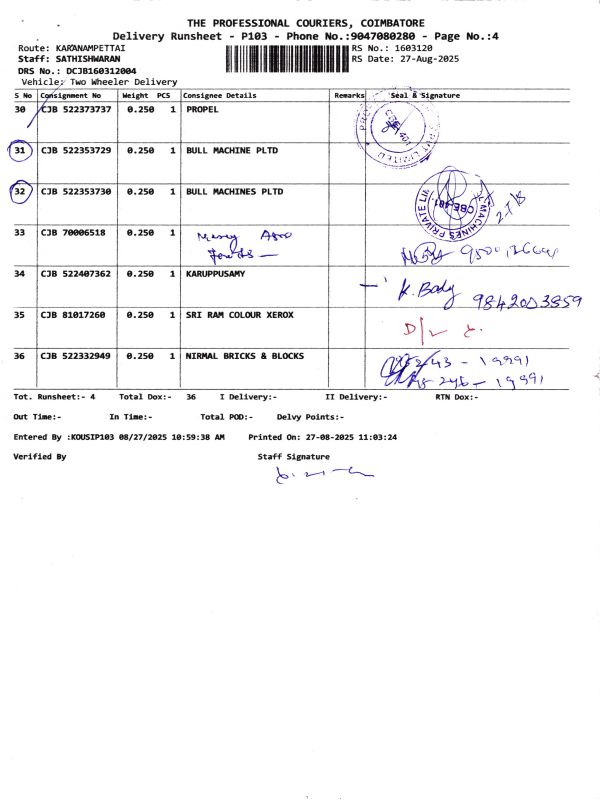 THE PROFESSIONAL COURIERS, COIMBATORE
Delivery Runsheet - P103 - Phone No.:9047080280 - Page No.:4
Route: KARANAMPETTAI RS No.: 1603120
Staff: SATHISHWARAN RS Date: 27-Aug-2025
DRS No.: DCJB160312004
Vehicle: Two Wheeler Delivery
S No Consignment No Weight PCS Consignee Details Remarks Seal & Signature
30 CJB 522373737 0.250 1 PROPEL
31 CJB 522353729 0.250 1 BULL MACHINE PLTD
32 CJB 522353730 0.250 1 BULL MACHINES PLTD
MACHINES PRIVATE LIM
33 CJB 70006518 0.250 1 Agro
Foods
34 CJB 522407362 0.250 1 KARUPPUSAMY
K. Body
9842003859
35 CJB 81017260 0.250 1 SRI RAM COLOUR XEROX
D/L
36 CJB 522332949 0.250 1 NIRMAL BRICKS & BLOCKS
243 - 19991
246 - 19991
Tot. Runsheet:- 4 Total Dox:- 36 I Delivery:- II Delivery:- RTN Dox:-
Out Time:- In Time:- Total POD:- Delvy Points:-
Entered By :KOUSIP103 08/27/2025 10:59:38 AM Printed On: 27-08-2025 11:03:24
Verified By Staff Signature